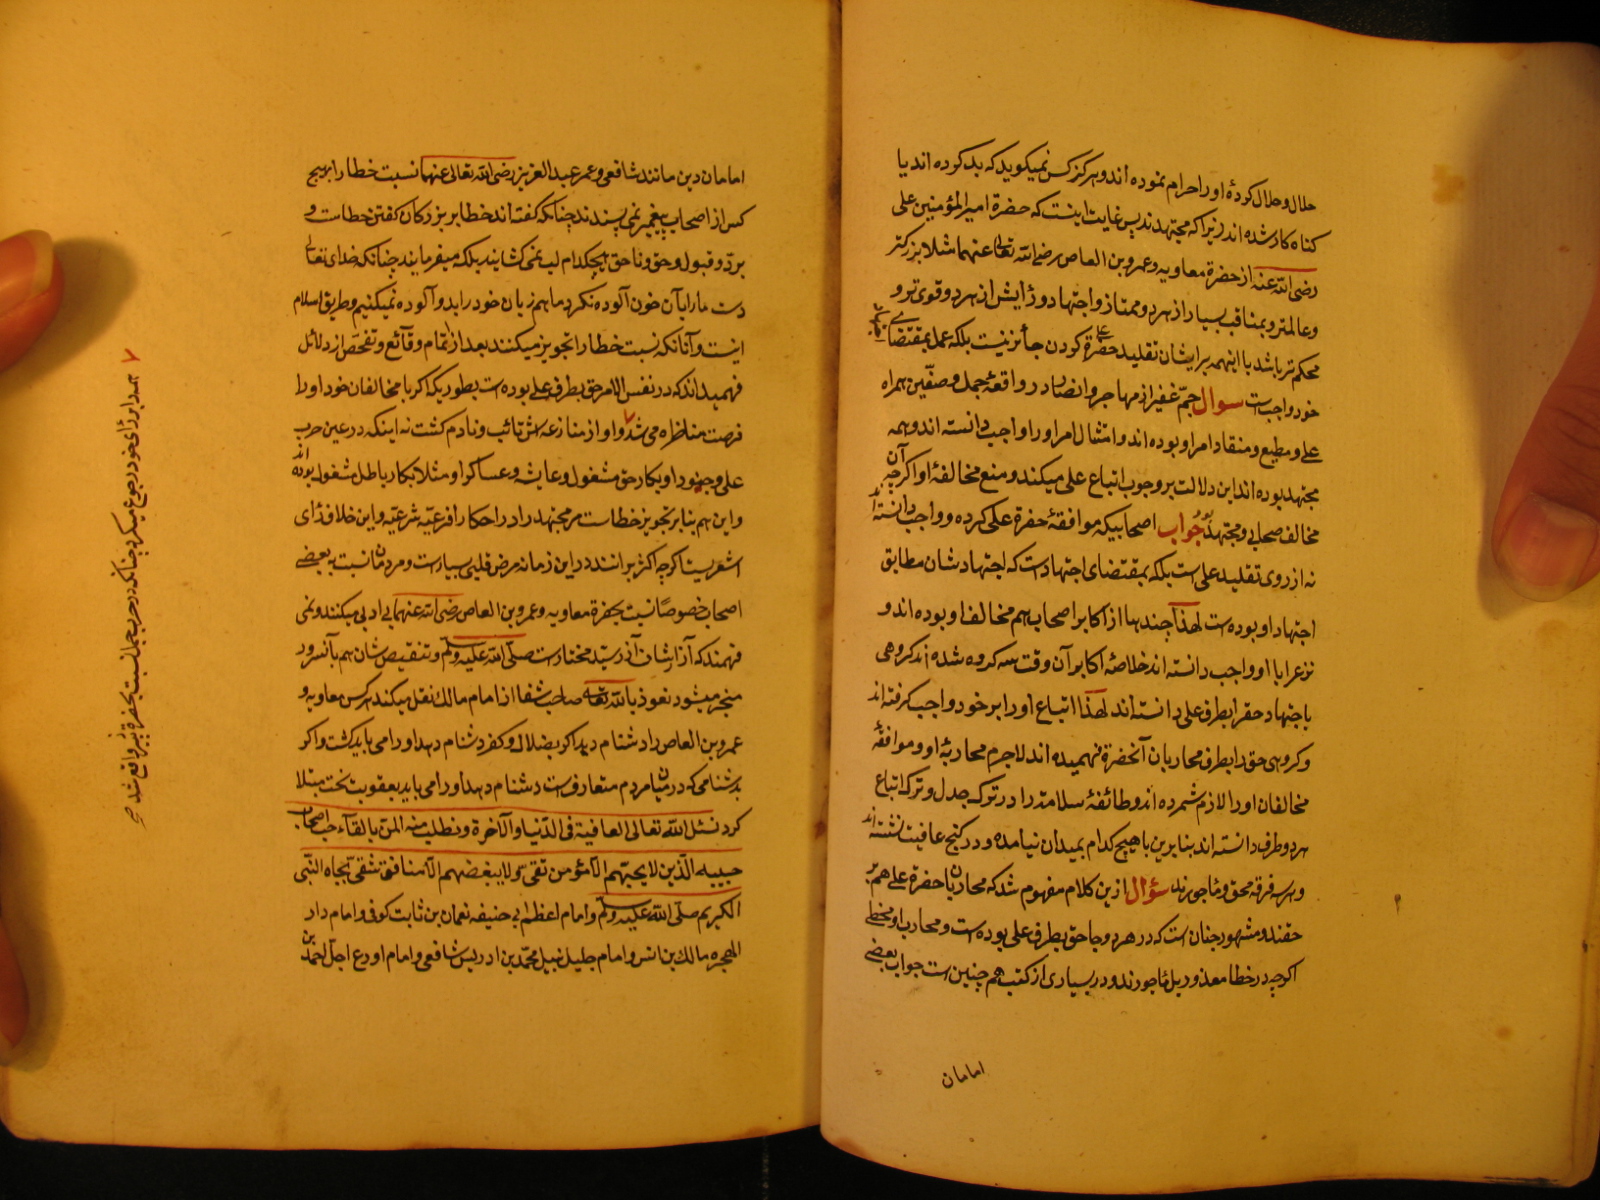 حلال و حلال کردهٔ او را حرام نموده اند و هرگز کس نمیگوید که بد کرده اند یا
گناه کار شده اند زیرا که مجتهدند پس غایت اینست که حضرة امیر المؤمنین علی
رضی الله عنه از حضرة معاویه و عمرو بن العاص رضی الله تعالی عنهما مثلا بزرکتر
و عالمتر و بمناقب بسیار از هر دو ممتاز و اجتهاد و رأیش از هر دو قوی تر و
محکم تر باشد با اینهمه بر ایشان تقلید حضرة علی کردن جائز نیست بلکه عمل بمقتضای اجتهاد
خود واجبست سوال جمّ غفیر از مهاجر و انصار در واقعهٔ جمل و صفّین همراه
علی و مطیع و منقاد امر او بوده اند و امتثال امر او را واجب دانسته اند و همه
مجتهد بوده اند این دلالت بر وجوب اتباع علی میکند و منع مخالفهٔ او اکرچه آن
مخالف صحابی و مجتهد بود جواب اصحابیکه موافقهٔ حضرة علی کرده و واجب دانسته اند
نه از روی تقلید علی است بلکه بمقتضای اجتهادست که اجتهادشان مطابق
اجتهاد او بوده است لهذا چندها از اکابر اصحاب هم مخالف او بوده اند و
نزع را با او واجب دانسته اند خلاصه اکابر آن وقت سه کروه شده اند کروهی
باجتهاد حق را بطرف علی دانسته اند لهذا اتباع او را بر خود واجب کرفته اند
و کروهی حق را بطرف محاربان آنحضرة فهمیده اند لاجرم محاربهٔ او و موافقهٔ
مخالفان او را لازم شمرده اند و طائفهٔ سلامة را در ترک جدل و ترک اتباع
هر دو طرف دانسته اند بنا برین با هیچ کدام بمیدان نیامده و در کنج عافیت نشسته اند
و هر سه فرقه محق و مأجورند سؤال ازین کلام مفهوم شد که محاربان با حضرة علی هم بر
حقند و مشهور چنان است که در هر دو جا حق بطرف علی بوده است و محارب او مخطی
اکرچه در خطا معذور بل مأجورند و در بسیاری از کتب هم چنین است جواب بعضی
امامان
امامان دین مانند شافعی و عمر عبد العزیز رضی الله تعالی عنهما نسبت خطا را بر هیچ
کس از اصحاب پیغمبر نمی پسندند چنانکه کفته اند خطا بر بزرکان کفتن خطاست و
برد و قبول و حق و ناحق هیچکدام لب نمی کشایند بلکه میفرمایند چنانکه خدای تعالی
دست ما را بآن خون آلوده نکرد ما هم زبان خود را بدو آلوده نمیکنیم و طریق اسلام
اینست و آنانکه نسبت خطا را تجویز میکنند بعد از تمام وقائع و تفحّص از دلائل
فهمیده اند که در نفس الامر حق بطرف علی بوده است بطوریکه اکر با مخالفان خود او را
فرصت مناظره می شد و او از منازعه اش تائب و نادم کشت نه اینکه در عین حرب
علی و جنود او بکار حق مشغول و عایشه و عساکر او مثلا بکار باطل مشغول بوده اند
و این هم بنا بر تجویز خطاست مر مجتهد را در احکام فرعیّه شرعیّه و این خلاف رأی
اشعریست اکرچه اکثر بر انند در این زمانه مرض قلبی بسیارست و مردمان نسبت به بعضی
اصحاب خصوصًا نسبت بحضرة معاویه و عمرو بن العاص رضی الله عنهما بی ادبی میکنند و نمی
فهمند که آزار شان آن سید مختارست صلّی الله علیه وسلّم و تنقیص شان هم بآنسرور
منجر میشود نعوذ بالله تعالی صاحب شفا از امام مالک نقل میکند هر کس معاویه و
عمرو بن العاص را دشنام دهد اکر بضلال و کفر دشنام دهد او را می باید کشت و اکر
بدشنامی که در میان مردم متعارفست دشنام دهد او را می باید بعقوبت سخت مبتلا
کرد نسئل الله تعالی العافیة فی الدّنیا و الآخرة و نطلب منه المنّ بالقآء حب اصحاب
حبیبه الّذین لا یحبّهم الّا مؤمن تقیّ و لا یبغضهم الّا منافق شقی بجاه النّبی
الکریم صلّی الله علیه وسلّم و امام اعظم ابی حنیفه نعمان بن ثابت کوفی و امام دار
الهجره مالک بن انس و امام جلیل نبیل محمّد بن ادریس شافعی و امام اورع اجل احمد بن
رأی خود رجوع میکرد چنانکه در حرب جمل نسبت بحضرة زبیر واقع شد صح